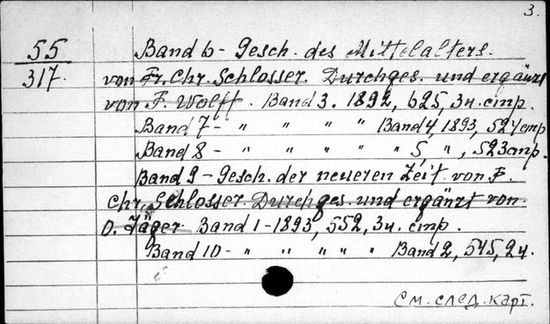 3.
55 Band 6 - Gesch. des Mittelalters.
317. von Fr. Chr. Schlosser. Durchges. und ergänzt
von F. Wolff. Band 3. 1892, 625, 3н. стр.
Band 7 - " " " " Band 4, 1893, 524 стр
Band 8 - " " " " " 5 " , 523 стр.
Band 9 - Gesch. der neueren Zeit. von F.
Chr. Schlosser. Durchges. und ergänzt von
O. Jäger. Band 1 - 1893, 552, 3н. стр.
Band 10 - " " " " Band 2, 545, 2н.
См. след. карт.